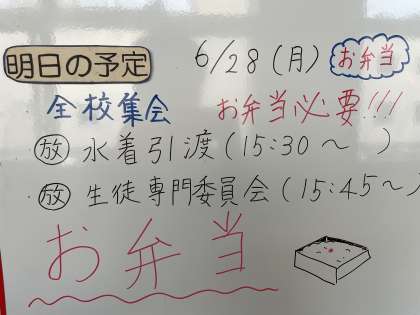 明日の予定 6/28(月) お弁当
全校集会 お弁当必要!!!
放 水着引渡(15:30〜 )
放 生徒専門委員会(15:45〜)
お弁当